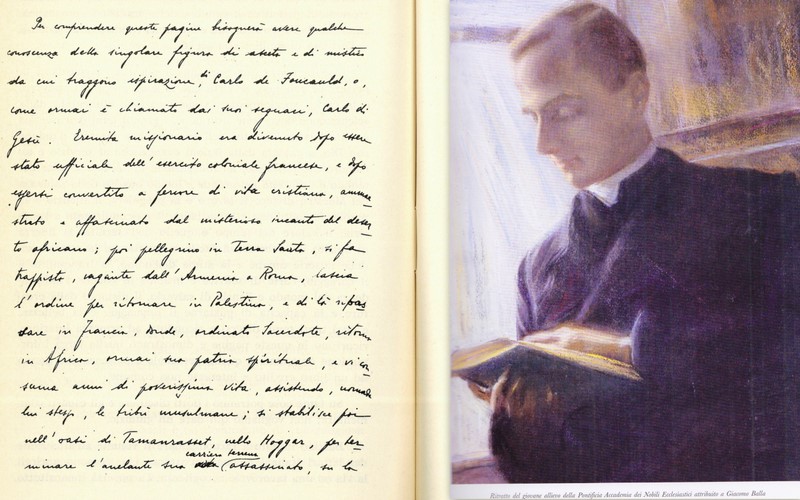 Per comprendere queste pagine bisognerà avere qualche
conoscenza della singolare figura di asceta e di mistico
da cui traggono ispirazione, di Carlo de Foucauld, o,
come ormai è chiamato dai suoi seguaci, Carlo di
Gesù. Eremita missionario era divenuto dopo essere
stato ufficiale dell'esercito coloniale francese, e dopo
essersi convertito a fervore di vita cristiana, ammae
strato e affascinato dal misterioso incanto del deser
to africano; poi pellegrino in Terra Santa, si fa
trappista, vagante dall'Armenia a Roma, lascia
l'ordine per ritornare in Palestina, e di là ripas
sare in Francia, donde, ordinato Sacerdote, ritorna
in Africa, ormai sua patria spirituale, e vi con
suma anni di poverissima vita, assistendo, nomade
lui stesso, le tribù musulmane; si stabilisce poi
nell'oasi di Tamanrasset, nello Hoggar, per ter
carriera terrena
minare l'anelante sua (assassinato, su la
Ritratto del giovane allievo della Pontificia Accademia dei Nobili Ecclesiastici attribuito a Giacomo Balla